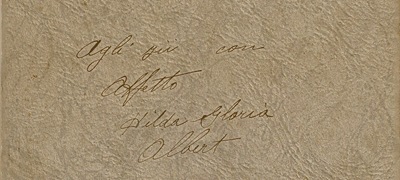 Agli zii con
Affetto
Hilda Gloria
Albert